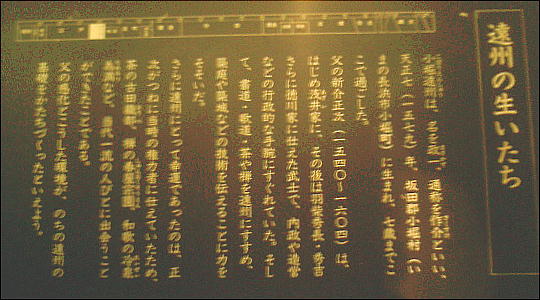 遠州の生いたち
小堀遠州は、名を政一、通称を作介といい、
天正七（一五七九）年、坂田郡小堀村（い
まの長浜市小堀町）に生まれ、七歳までこ
こで過ごした。
父の新介正次（一五四〇～一六〇四）は、
はじめ浅井家に、その後は羽柴秀長・秀吉
さらに徳川家に仕えた武士で、内政や造営
などの行政的な手腕にすぐれていた。そし
て、書道・歌道・茶や禅を遠州にすすめ、
築庭や築城などの技術を伝えることに力を
そそいだ。
さらに遠州にとって幸運であったのは、正
次がつねに当時の権力者に仕えていたため、
茶の古田織部、禅の春屋宗園、和歌の
など、当代一流の人びとに出会うこと
ができたことである。
父の感化とこうした環境が、のちの遠州の
基礎をかたちづくったといえよう。